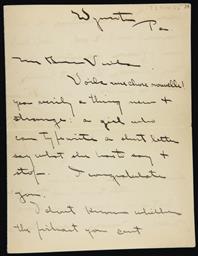 Wyncote
Pa
My dear Viola
Voila une chose nouvelle!
you verily a thing new &
strange. a girl who
can typewrite a short letter
say what she wants say &
stop. I congratulate
you.
I dont know whether
the you sent